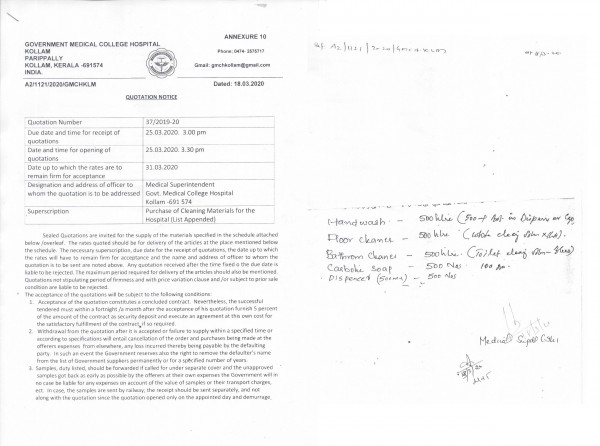 ANNEXURE 10
GOVERNMENT MEDICAL COLLEGE HOSPITAL
KOLLAM
PARIPPALLY
KOLLAM, KERALA -691574
INDIA.
Phone: 0474- 2575717
Gmail: gmchkollam@gmail.com
A2/1121/2020/GMCHKLM
Dated: 18.03.2020
QUOTATION NOTICE
Quotation Number 37/2019-20
Due date and time for receipt of quotations 25.03.2020. 3.00 pm
Date and time for opening of quotations 25.03.2020. 3.30 pm
Date up to which the rates are to remain firm for acceptance 31.03.2020
Designation and address of officer to whom the quotation is to be addressed Medical Superintendent Govt. Medical College Hospital Kollam -691 574
Superscription Purchase of Cleaning Materials for the Hospital (List Appended)
Sealed Quotations are invited for the supply of the materials specified in the schedule attached
below /overleaf. The rates quoted should be for delivery of the articles at the place mentioned below
the schedule. The necessary superscription, due date for the receipt of quotations, the date up to which
the rates will have to remain firm for acceptance and the name and address of officer to whom the
quotation is to be sent are noted above. Any quotation received after the time fixed o the due date is
liable to be rejected. The maximum period required for delivery of the articles should also be mentioned.
Quotations not stipulating period of firmness and with price variation clause and /or subject to prior sale
condition are liable to be rejected.
The acceptance of the quotations will be subject to the following conditions.
1. Acceptance of the quotation constitutes a concluded contract. Nevertheless, the successful
tendered must within a fortnight /a month after the acceptance of his quotation furnish 5 percent
of the amount of the contract as security deposit and execute an agreement at this own cost for
the satisfactory fulfillment of the contract if so required.
2. Withdrawal from the quotation after it is accepted or failure to supply within a specified time or
according to specifications will entail cancellation of the order and purchases being made at the
offerers expenses from elsewhere, any loss incurred thereby being payable by the defaulting
party. In such an event the Government reserves also the right to remove the defaulter's name
from the list of Government suppliers permanently or for a specified number of years.
3. Samples, duty listed, should be forwarded if called for under separate cover and the unapproved
samples got back as early as possible by the offerers at their own expenses the Government will in
no case be liable for any expenses on account of the value of samples or their transport charges,
ect. In case, the samples are sent by railway, the receipt should be sent separately, and not
along with the quotation since the quotation opened only on the appointed day and demurrage,
A2/1121/2020/GMCHKLM
Handwash - 500
Floor cleaner - 500
Bathroom cleaner - 500
Carbolic Soap - 500 Nos
Dispenced (500ml) - 500 Nos
Medical